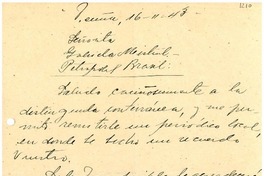 Vicuña, 16-11-43
Señorita
Gabriela Mistral
Petropolis Brasil:
Saludo cariñosamente a la
distinguida conterránea, y me per-
mito remitirle un periódico local,
en donde se hacen un recuerdo
Vuestro.